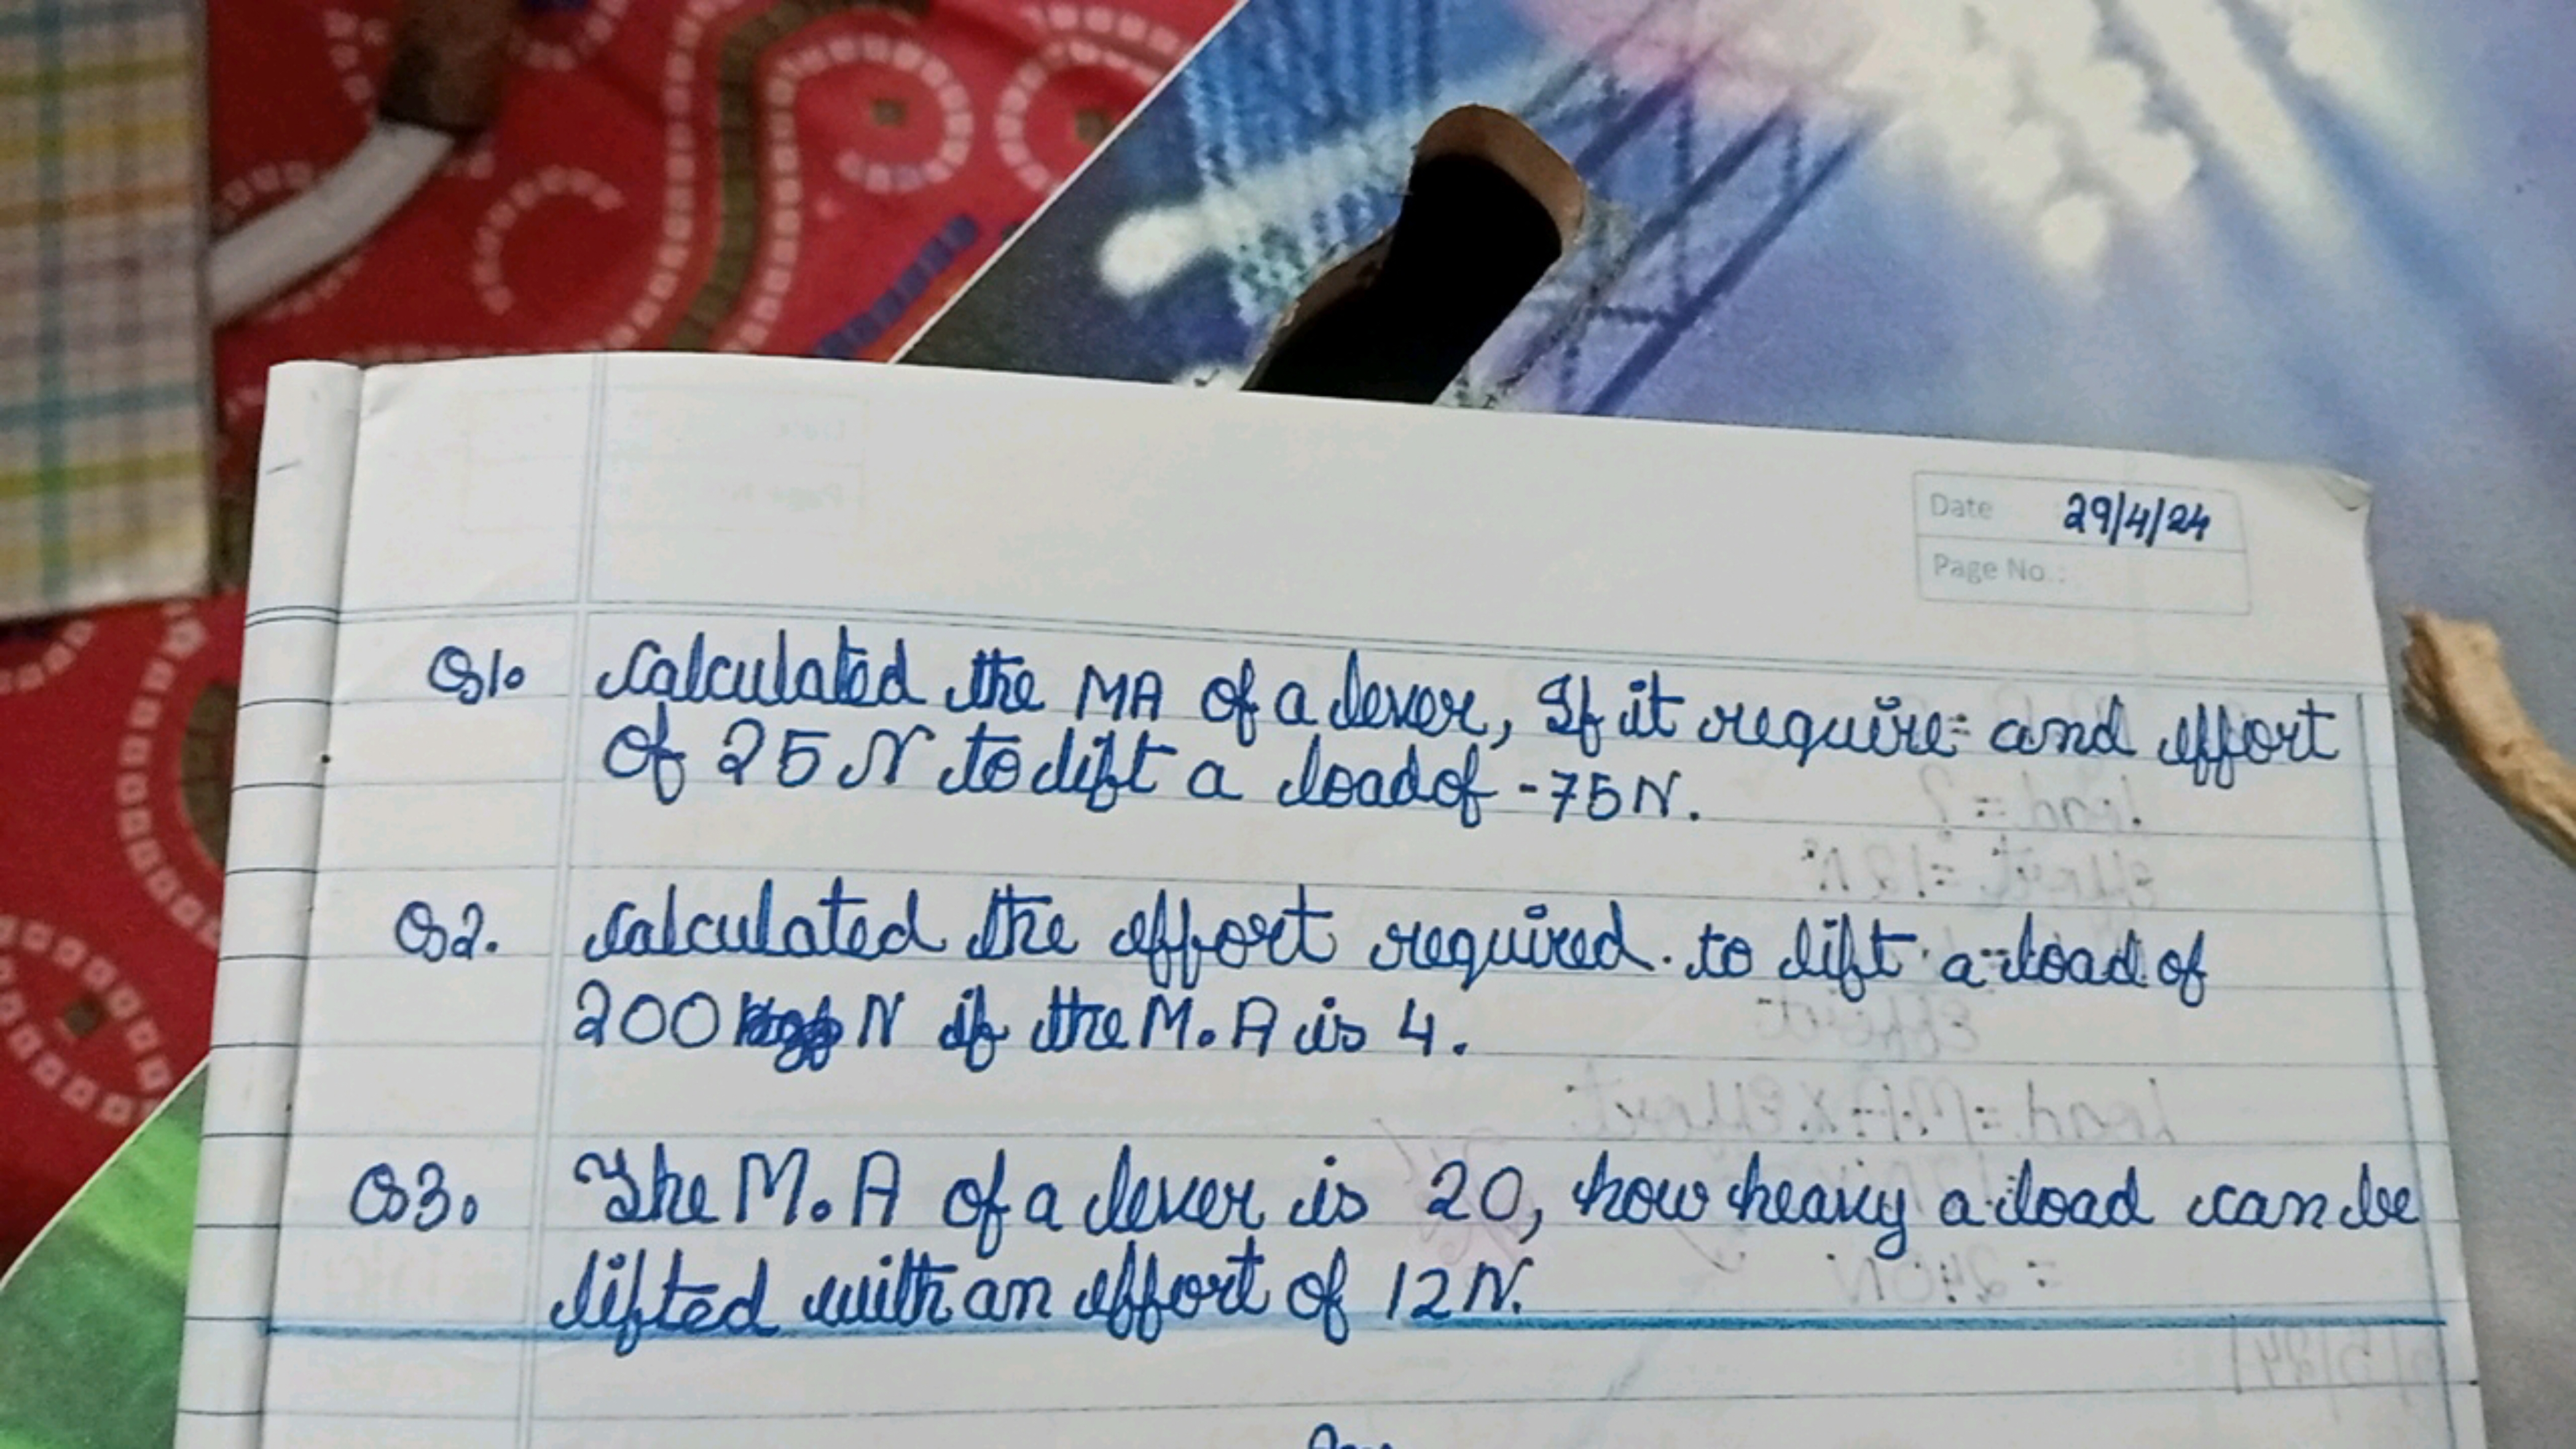 Date 29/4/24
Page No.:
Q1. Calculated the MA of a lever, If it require and effort
of 25 N to lift a load of -75N.
Q2. Calculated the effort required to lift a load of
200 N if the M.A is 4.
Q3. The M.A of a lever is 20, how heavy a load can be
lifted with an effort of 12N.